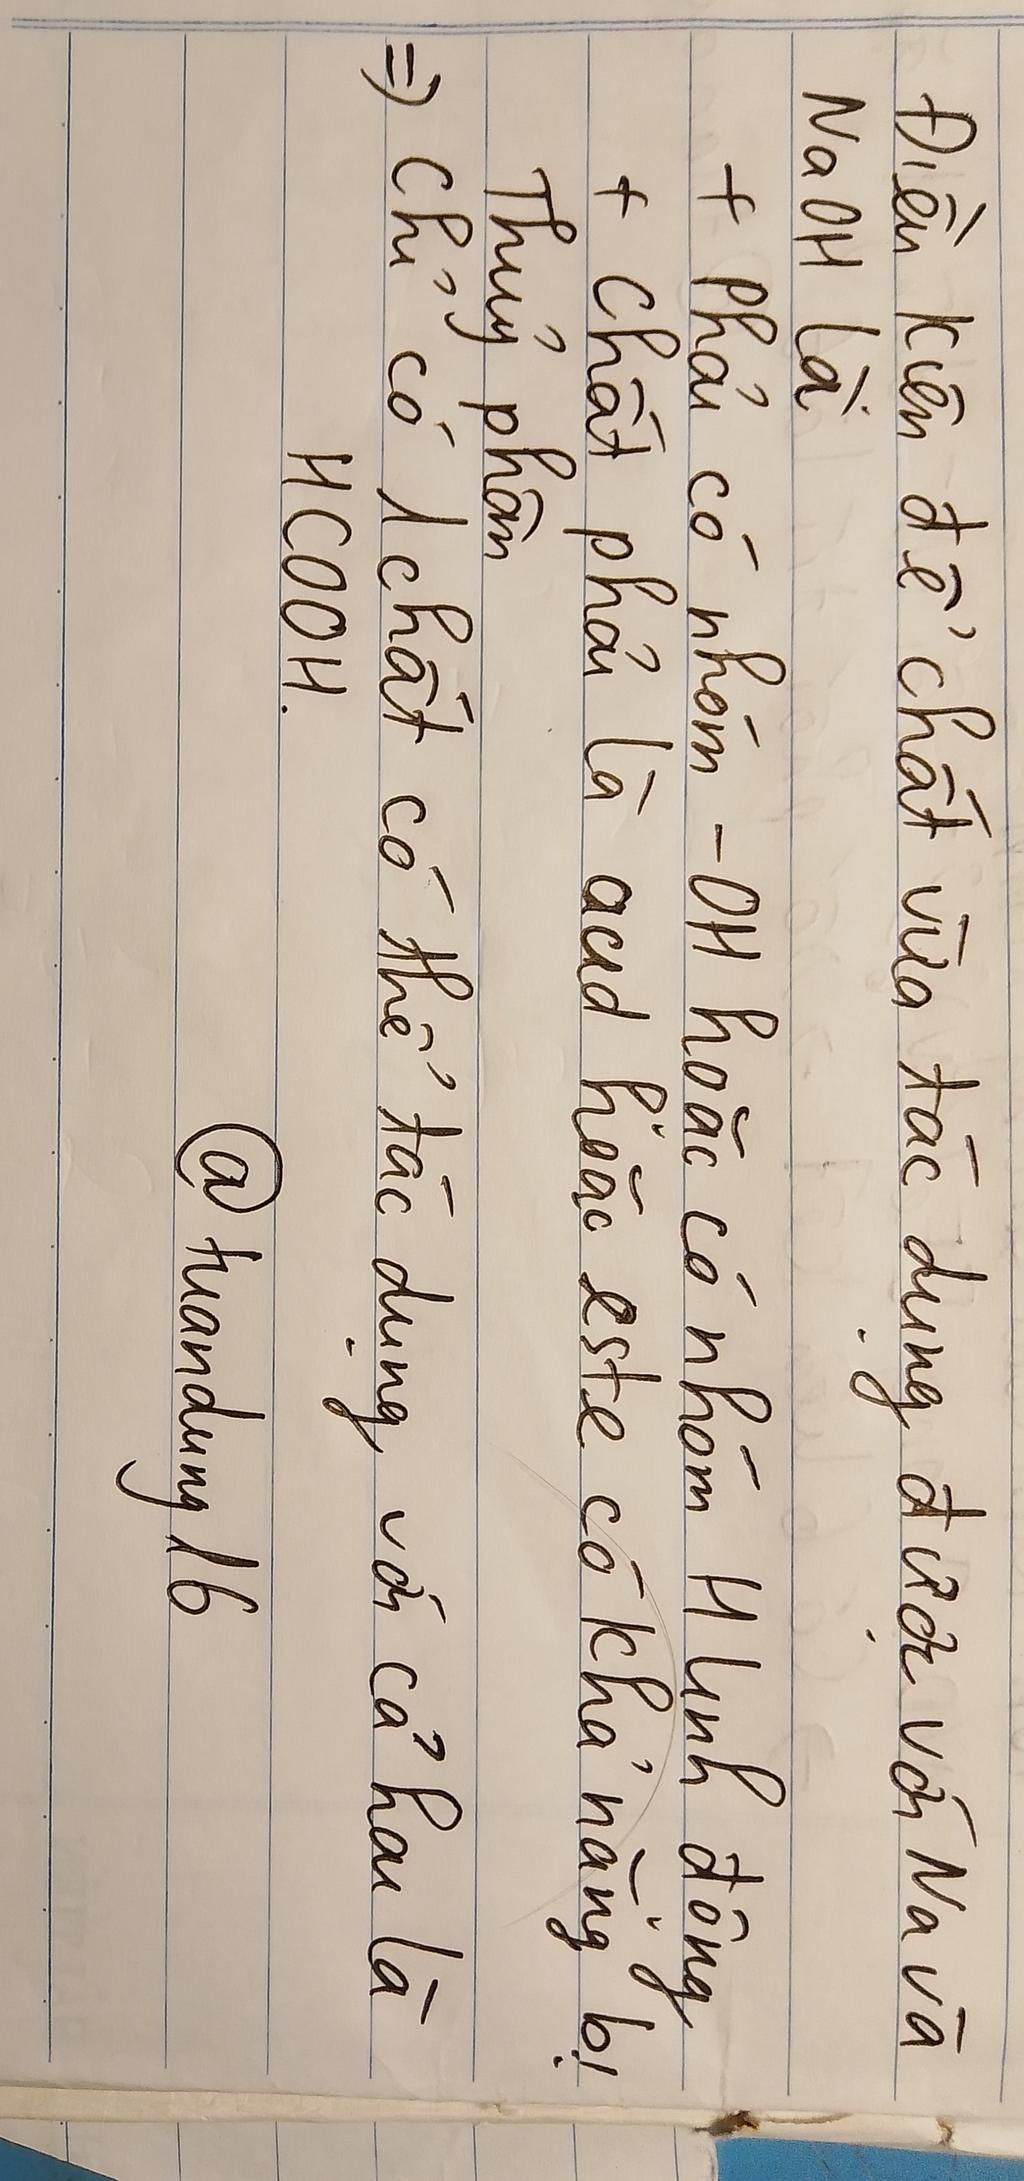 Điều kiện để chất vừa tác dụng được với Na và
NaOH là
+ Phải có nhóm -OH hoặc có nhóm H linh động
+ Chất phải là acid hoặc este có khả năng bị
Thủy phân
=> Chỉ có 1 chất có thể tác dụng với cả hai là
HCOOH.
@tuandung16